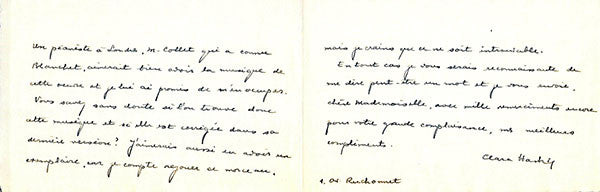 Un pianiste à Londres, M. Collet qui a connu
Blanchet, aimerait bien avoir la musique de
cette oeuvre et je lui ai promis de m'en occuper.
Vous savez sans doute si l'on trouve donc
cette musique et si elle est corrigée dans sa
dernière version? J'aimerais aussi en avoir un
exemplaire, car je compte rejouer ce morceau.
mais je crains que ce ne soit introuvable.
En tout cas je vous serais reconnaissante de
me dire peut-être un mot et je vous envoie,
chère Mademoiselle, avec mille remerciements encore
pour votre grande complaisance, mes meilleurs
compliments.
Clara Haskil
1, Av. Ruchonnet